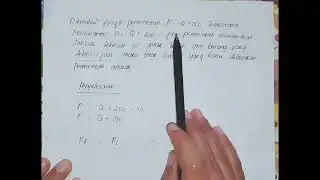 Diketahui fungsi permintaan P = Q + 150 Sementara
Penawaran P = Q + 200. Jika pemerintah memberikan
Subsidi sebesar 10 untuk setiap unit barang yang
dibeli
pemerintah adalah
Penyelesaian
P = Q + 200 - 10
P = Q + 190
Pd = Ps